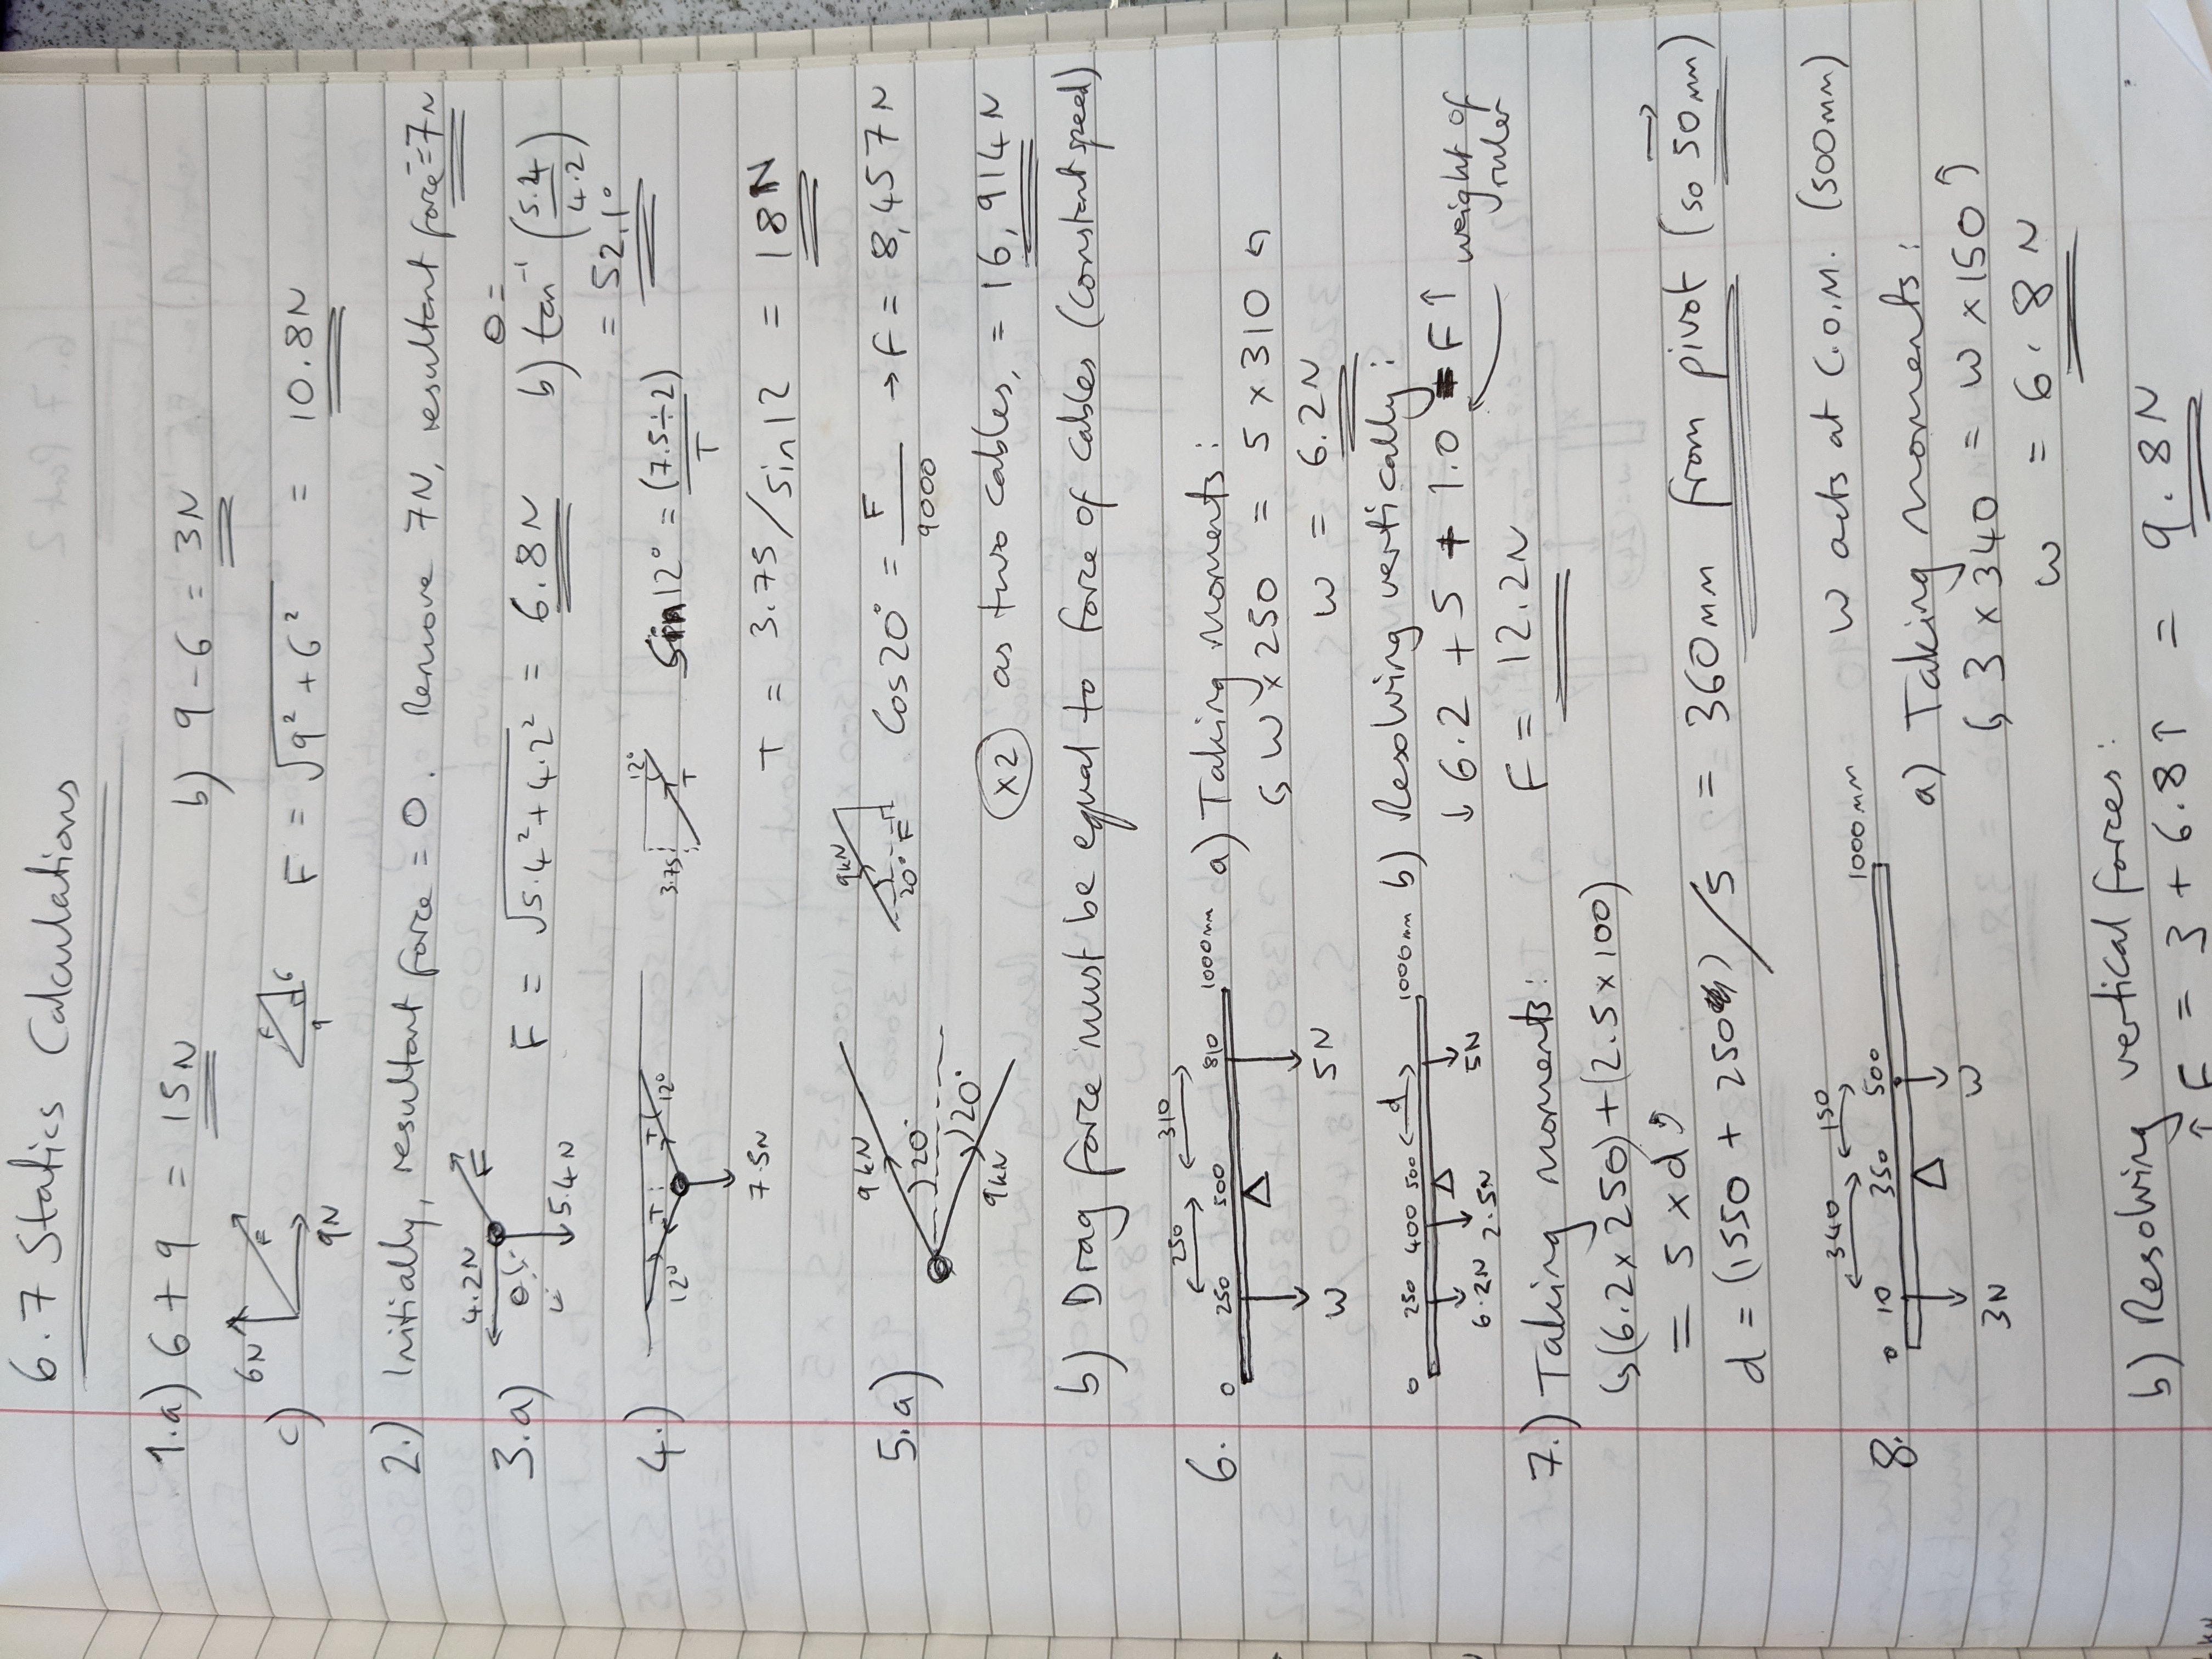 6.7 Statics Calculations
1.a) 6 + 9 = 15N b) 9 - 6 = 3N
c) 6N F 9N F 6 9 F = √9² + 6² = 10.8N
2.) Initially, resultant force = 0. Remove 7N, resultant force = 7N
3.a) 4.2N θ F 5.4N F = √5.4² + 4.2² = 6.8N b) θ = tan⁻¹ (5.4/4.2)
= 52.1°
4.) 12° T T 12° 7.5N 3.75 12° T Sin12° = (7.5÷2)/T
T = 3.75/sin12 = 18N
5.a) 9kN 20° 20° 9kN 9kN 20° F Cos20° = F/9000 → F = 8,457N
(x2) as two cables, = 16,914N
b) Drag force must be equal to force of cables (constant speed)
6. 0 250 500 810 1000mm 250 310 W 5N a) Taking moments:
↶ W × 250 = 5 × 310 ↷
W = 6.2N
0 250 400 500 d 1000mm 6.2N 2.5N 5N b) Resolving vertically:
↓ 6.2 + 5 + 1.0 = F ↑ weight of ruler
F = 12.2N
7.) Taking moments:
↶ (6.2 × 250) + (2.5 × 100)
= 5 × d ↷
d = (1550 + 250) / 5 = 360mm from pivot (so 50mm →)
8. 0 10 350 500 1000mm 340 150 3N W W acts at C.O.M. (500mm)
a) Taking moments:
↶ 3 × 340 = W × 150 ↷
W = 6.8N
b) Resolving vertical forces:
↑ F = 3 + 6.8 ↑ = 9.8N